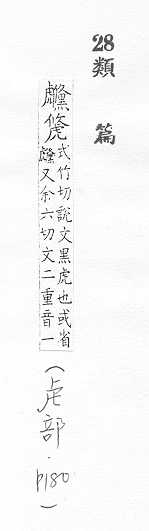 28 類篇
虪
式竹切說文黑虎也或省
虪又余六切文二重音一
(虎部.p180)